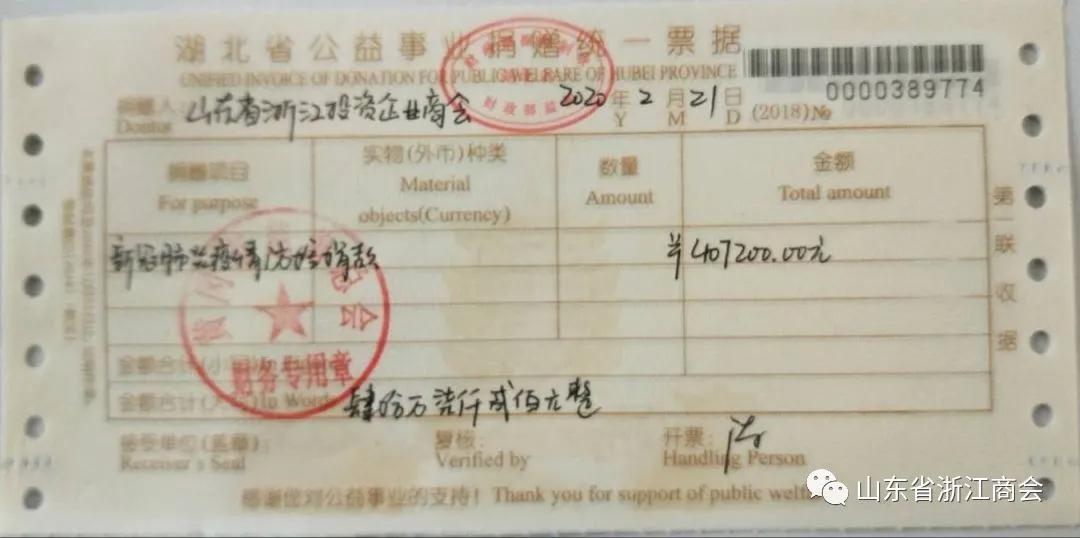 湖北省公益事业捐赠统一票据
UNIFIED INVOICE OF DONATION FOR PUBLIC WELFARE OF HUBEI PROVINCE
捐赠人: 山东省浙江投资企业商会 2020年2月21日 (2018)№ 0000389774
Donor Y M D
捐赠项目 实物(外币)种类 数量 金额
For purpose Material objects(Currency) Amount Total amount
新冠肺炎疫情防控捐款 ¥407200.00元
金额合计(小写)In
金额合计(大写)In Words 肆拾万柒仟贰佰元整
财务专用章
接受单位(盖章): 复核: 开票:
Receiver's Seal Verified by Handling Person
感谢您对公益事业的支持! Thank you for support of public welf
第一联收据
财政部监
山东省浙江商会